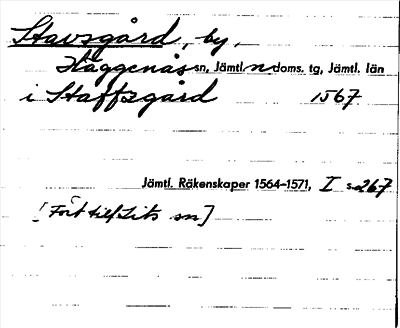 Stavsgård, by,
Häggenås sn, Jämtl. n doms. tg, Jämtl. län
i Staffzgård 1567
Jämtl. Räkenskaper 1564-1571, I s. 267
[Fört till Lits sn]